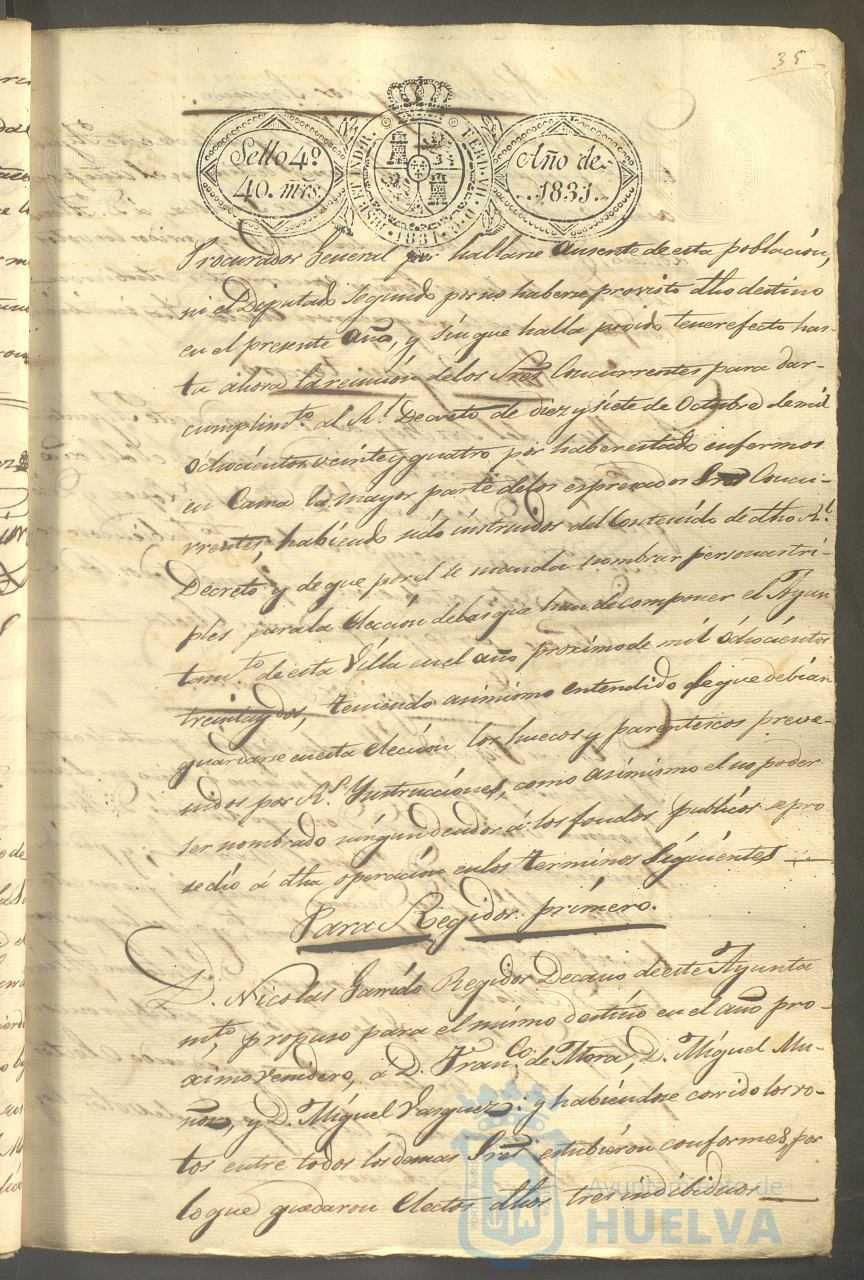 35
Sello 4º
40. mrs.
HISP. ET IND. R. FERD. VII. D. G. 1831.
Año de
1831.
Procurador General por hallarse ausente de esta población,
ni el Diputado segundo por no haberse provisto dho destino
en el presente año, y sin que halla podido tener efecto has-
ta ahora la reunión de los Sres Concurrentes para dar-
cumplimto al Rl Decreto de diez y siete de Octubre de mil
ochocientos veinte y quatro por haber estado enfermos
en Cama la mayor parte de los expresados Sres Concu-
rrentes, habiendo sido instruidos del contenido de dho Rl
Decreto y de que por el se manda nombrar personas tri-
ples para la elección de las que han de componer el Ayun
tamto de esta Villa en el año proximo de mil ochocientos
treinta y dos, teniendo asimismo entendido de que debian
guardarse en esta elección los huecos y parentescos preve-
nidos por Rs Ynstrucciones, como asimismo el no poder
ser nombrado ningun deudor á los fondos publicos se pro
sedió á dha operación en los terminos siguientes
Para Regidor primero.
D. Nicolas Garrido Regidor Decano de este Ayunta
mto, propuso para el mismo destino en el año pro-
ximo venidero, a D. Franco de Mora, D. Miguel Mu-
ñoz, y D. Miguel Vazquez: y habiendose corrido los vo-
tos entre todos los demas Sres estubieron conformes, por
lo que quedaron electos dhos tres individuos
Ayuntamiento de
HUELVA